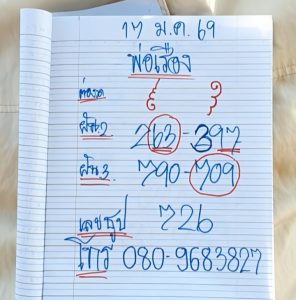 17 ม.ค. 69
พ่อเรือง
ฝัน2 263-397
ฝัน3. 790-709
เลขธูป 726
โทร 080-9683827